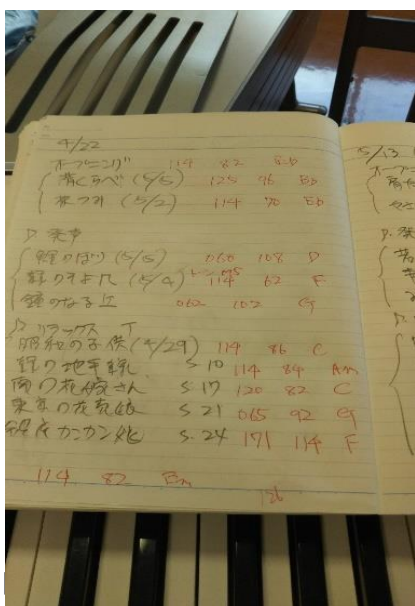 4/22
オープニング 114 82 Eb
背くらべ (5/5) 125 96 Bb
茶つみ (5/2) 114 90 Eb
鯉のぼり (5/5) 060 108 D
緑のそよ風 (5/4) 114 62 F
鐘のなる丘 062 102 G
リラックス
昭和の子供 (4/29) 114 86 C
緑の地平線 S.10 114 84 Am
岡の花嫁さん S.17 120 82 C
東京の花売娘 S.21 065 92 G
銀座カンカン娘 S.24 171 114 F
114 82 Em
126
5/13